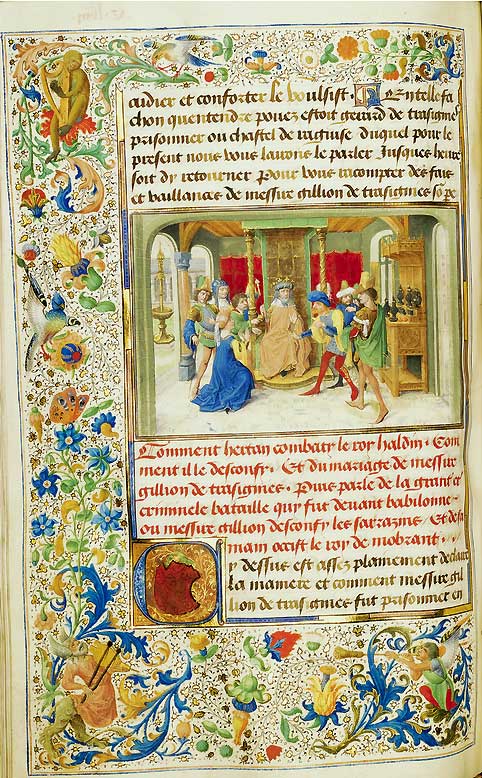 aidier et conforter le voulsist. En telle fa
chon quentendre pouez estoit gerard de trasignies
prisonnier ou chastel de raguise duquel pour le
present nous vous lairons le parler Jusques heure
soit dy retourner Pour vous racompter des fais
et vaillances de messire gillion de trasignies so pe
Comment hertan combaty le roy haldin. Com
ment il le desconfy. Et du mariage de messire
gillion de trasignies. Puis parle de la grant et
criminele bataille quy fut deuant babilonne
ou messire gillion desconfy les sarrazins Et de sa
main occist le roy de mobrant
Cy dessus est assez plainement declairie
la maniere et comment messire gil
lion de trasignies fut prisonnier en